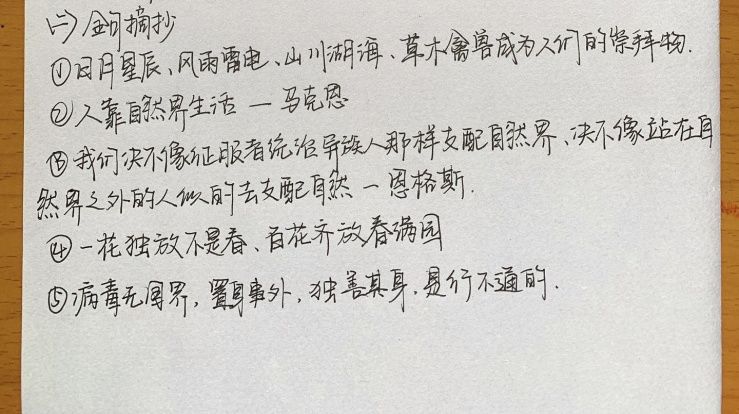 (二) 金句摘抄
①日月星辰、风雨雷电、山川湖海、草木禽兽成为人们的崇拜物.
②人靠自然界生活 — 马克思
③我们决不像征服者统治异族人那样支配自然界、决不像站在自
然界之外的人似的去支配自然 — 恩格斯.
④一花独放不是春、百花齐放春满园
⑤病毒无国界, 置身事外, 独善其身, 是行不通的.